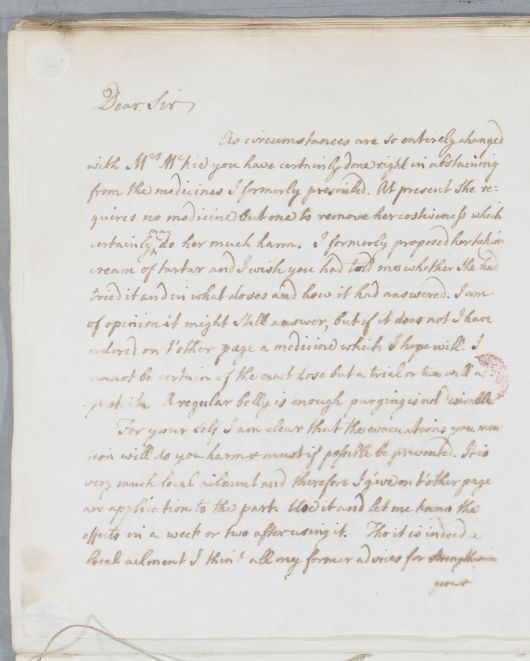 Dear Sir
As circumstances are so entirely changed
with Mrs McKie you have certainly done right in abstaining
from the medicines I formerly prescribed. At present she re-
quires no medicine but one to remove her costiveness which
certainly may do her much harm. I formerly proposed her taking
cream of tartar and I wish you had told me whether She had
tried it and in what doses and how it had answered. I am
of opinion it might still answer, but if it does not I have
ordered on t'other page a medicine which I hope will. I
cannot be certain of the exact dose but a trial or two will a-
A regular belly is enough purging is not desirable
For your self I am clear that the evacuations you men
tion will do you harm & must if possible be prevented. It is
very much local ailment and therefore I give on t'other page
an application to the part. Use it and let me know the
effects in a week or two after using it. Tho it is indeed a
local ailment I think all my former advices for strengthening
your